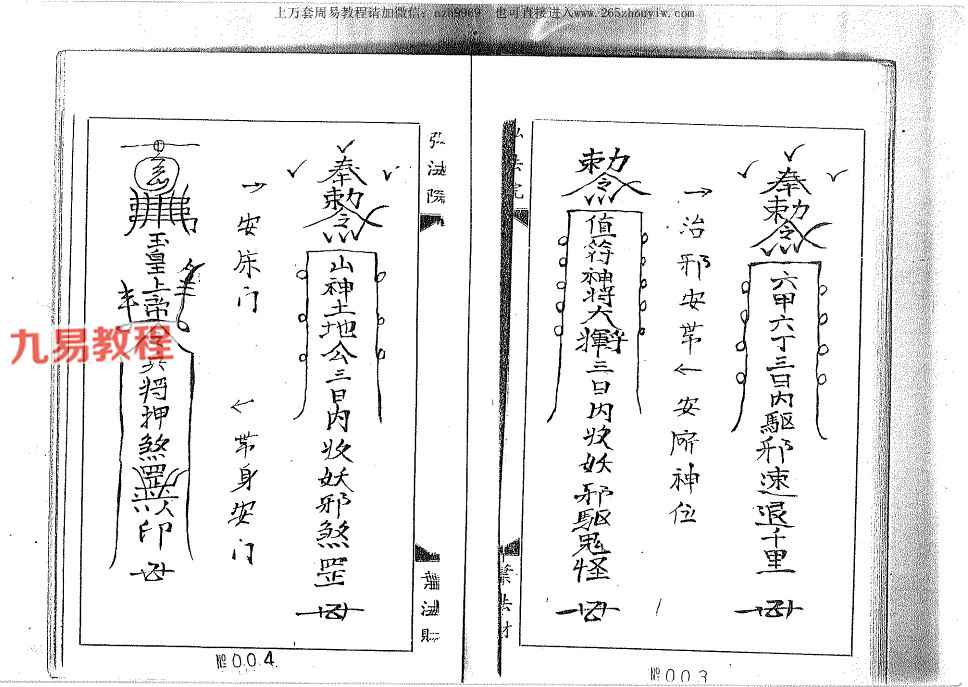 上万套周易教程请加微信: nzh9989 也可直接进入www.265zhouyiw.com
奉
勅令
六甲六丁三日内驱邪速退千里
→治邪安苐←安㡳神位
勅令
值符神将大将軍三日内收妖邪驱鬼怪
№003
弘法院
奉
勅令
山神土地公三日内收妖邪煞罡
→安床门
←苐身安门
玉皇上帝
兵将押煞罡
印
九易教程
№004